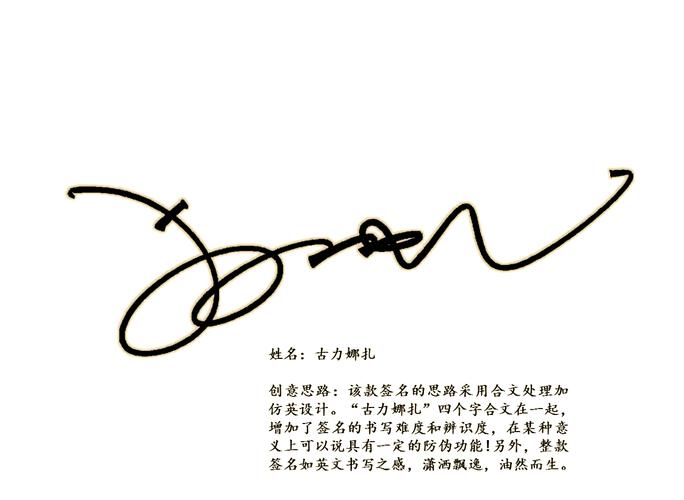 姓名：古力娜扎
创意思路：该款签名的思路采用合文处理加
仿英设计。“古力娜扎”四个字合文在一起，
增加了签名的书写难度和辨识度，在某种意
义上可以说具有一定的防伪功能！另外，整款
签名如英文书写之感，潇洒飘逸，油然而生。